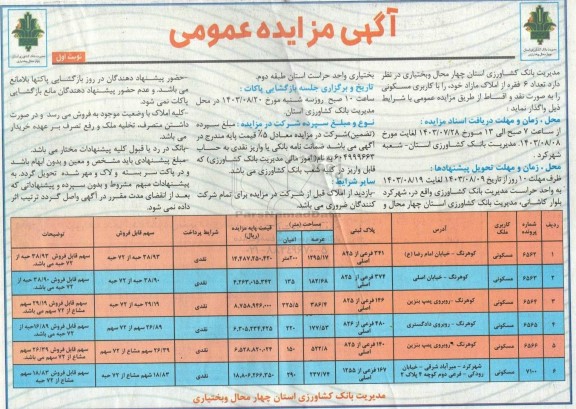 آگهی مزایده عمومی
نوبت اول
مدیریت بانک کشاورزی استان چهار محال وبختیاری در نظر
دارد تعداد ۶ فقره از املاک مازاد خود، را با کاربری مسکونی
را به صورت نقد و اقساط از طریق مزایده عمومی با شرایط
ذیل واگذار نماید :
محل ، زمان و مهلت دریافت اسناد مزایده :
از ساعت ۷ صبح الی ۱۳ مورخ ۱۴۰۳/۰۷/۲۸ لغایت مورخ
۱۴۰۳/۰۸/۰۸ مدیریت بانک کشاورزی استان- شعبه
شهرکرد
محل ، زمان و مهلت تحویل پیشنهادها :
ظرف مهلت ۱۰ روز از تاریخ ۱۴۰۳/۰۸/۰۹ لغایت ۱۴۰۳/۰۸/۱۹
به واحد حراست مدیریت بانک کشاورزی واقع در، شهرکرد
بلوار کاشانی، مدیریت بانک کشاورزی استان چهار محال و
بختیاری واحد حراست استان طبقه دوم.
تاریخ و برگزاری جلسه بازگشایی پاکات :
ساعت ۱۰ صبح روز سه شنبه مورخ ۱۴۰۳/۰۸/۲۰ در محل
مدیریت بانک کشاورزی استان
نوع و مبلغ سپرده شرکت در مزایده : مبلغ سپرده
(تضمین)شرکت در مزایده معادل ۵٪ قیمت پایه مندرج در
آگهی می باشد ضمانت نامه بانکی یا واریز نقدی به حساب
۶۰۴۹۹۹۶۶۳ به نام امور مالی مدیریت بانک کشاورزی( که
قابل واریز در کلیه شعب بانک کشاورزی می باشد.
سایر شرایط :
-بازدید از املاک قبل از شرکت در مزایده برای تمام شرکت
کنندگان ضروری می باشد.
-حضور پیشنهاد دهندگان در روز بازگشایی پاکتها بلامانع
می باشد، و عدم حضور پیشنهاد دهندگان مانع بازگشایی
پاکات نمی شود
-کلیه املاک با وضعیت موجود به فروش می رسد و در صورت
داشتن متصرف، تخلیه ملک و رفع تصرف بر عهده خریدار
می باشد.
-بانک در رد یا قبول کلیه پیشنهادات مختار می باشد.
-مبلغ پیشنهادی باید مشخص و معین و بدون ابهام باشد
و در پاکت سر بسته و لاک و مهر شده تحویل گردد. به
پیشنهادات مبهم مشروط و بدون سپرده و پیشنهاداتی که
بعد از انقضای مدت مقرر در آگهی واصل گردد ترتیب اثر
داده نمی شود.
ردیف شماره پرونده کاربری ملک آدرس پلاک ثبتی مساحت (متر) عرصه اعیان قیمت پایه مزایده (ریال) شرایط پرداخت سهم قابل فروش توضیحات
۱ ۶۵۶۲ مسکونی کوهرنگ - خیابان امام رضا (ع) ۳۴۱ فرعی از ۸۴۵ ۱۲۹۵/۱۷ ۲۰۰متر نقدی ۳۸/۹۳ حبه از ۷۲ حبه سهم قابل فروش ۳۸/۹۳ حبه از ۷۲ حبه می باشد.
۲ ۶۵۶۳ مسکونی کوهرنگ - خیابان اصلی ۳۷۴ فرعی از ۸۲۵ ۱۸۲/۶۸ ۱۳۵ نقدی ۳۸/۹۰ حبه از ۷۲ حبه سهم قابل فروش ۳۸/۹۰ حبه از ۷۲ حبه می باشد.
۳ ۶۵۶۴ مسکونی کوهرنگ - روبروی پمپ بنزین ۱۴۶ فرعی از ۸۲۵ ۳۸۶/۴ ۲۲۵/۵ ۸,۷۵۸,۹۴۶,۰۰۰ نقدی ۲۹/۱۹ حبه از ۷۲ حبه سهم قابل فروش ۲۹/۱۹ سهم مشاع از ۷۲ سهم می باشد.
۴ ۶۵۶۵ مسکونی کوهرنگ - روبروی دادگستری ۴۸۰ فرعی از ۸۲۶ ۱۷۷/۵۳ ۲۲۰ نقدی ۲۶/۸۹ سهم مشاع از ۷۲ سهم
۵ ۶۵۶۶ مسکونی کوهرنگ -روبروی پمپ بنزین ۱۴۰ فرعی از ۸۲۵ ۵۲۲/۸ ۱۵۰ نقدی ۲۶/۳۹ سهم مشاع از ۷۲ حبه سهم قابل فروش ۲۶/۳۹ سهم مشاع از ۷۲ حبه می باشد
۶ ۷۱۰۰ مسکونی شهرکرد - میرآباد شرقی - خیابان رودکی - فرعی دوم کوچه ۴ پلاک ۲ ۱۶۷ فرعی از ۱۲۵۵ ۲۳۷/۷۴ ۲۹۰ ۱۸,۸۰۶,۲۶۶,۳۵۰ نقدی ۱۸/۸۳ سهم مشاع از ۷۲ حبه سهم قابل فروش ۱۸/۸۳ سهم مشاع از ۷۲ حبه
مدیریت بانک کشاورزی استان چهار محال وبختیاری